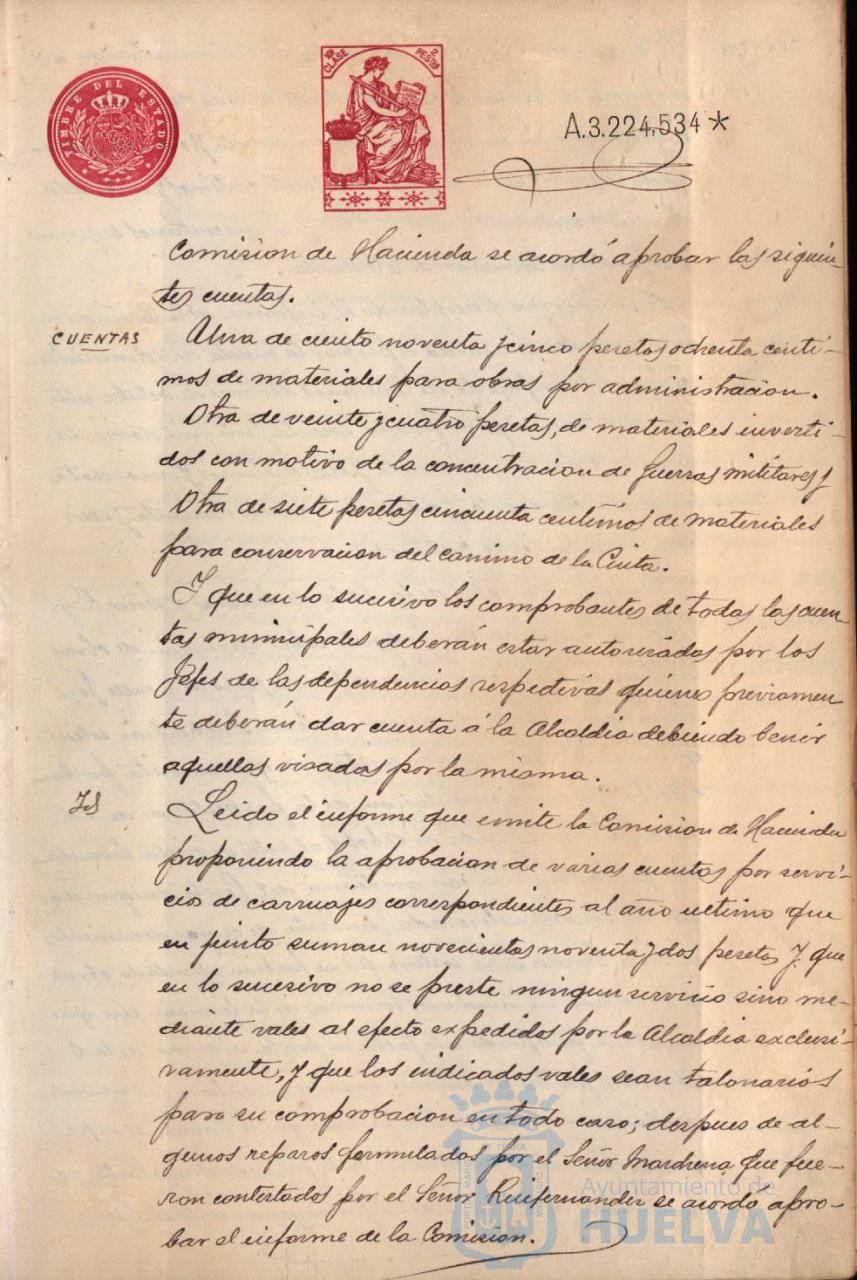 TIMBRE DEL ESTADO
10ª CLASE
2 PESTAS
A.3.224,534*
Comision de Hacienda se acordó aprobar las siguien-
tes cuentas.
CUENTAS
Una de ciento noventa y cinco pesetas ochenta centi-
mos de materiales para obras por administracion.
Otra de veinte y cuatro pesetas, de materiales inverti-
dos con motivo de la concentracion de fuerzas militares y
Otra de siete pesetas cincuenta centimos de materiales
para conservacion del camino de la Cinta.
Y que en lo sucesivo los comprobantes de todas las cuen
tas municipales deberán estar autorizados por los
Jefes de las dependencias respectivas quienes previamen
te deberán dar cuenta á la Alcaldia debiendo benir
aquellas visadas por la misma.
Id
Leido el informe que emite la Comision de Hacienda
proponiendo la aprobacion de varias cuentas por servi-
cios de carruajes correspondientes al año ultimo que
en junto suman novecientas noventa y dos pesetas y que
en lo sucesivo no se preste ningun servicio sino me-
diante vales al efecto expedidos por la Alcaldia exclusi-
vamente, y que los indicados vales sean talonarios
para su comprobacion en todo caso; despues de al-
gunos reparos formulados por el Señor Marchena que fue-
ron contestados por el Señor Ruifernandez se acordó apro-
bar el informe de la Comision.
Ayuntamiento de
HUELVA